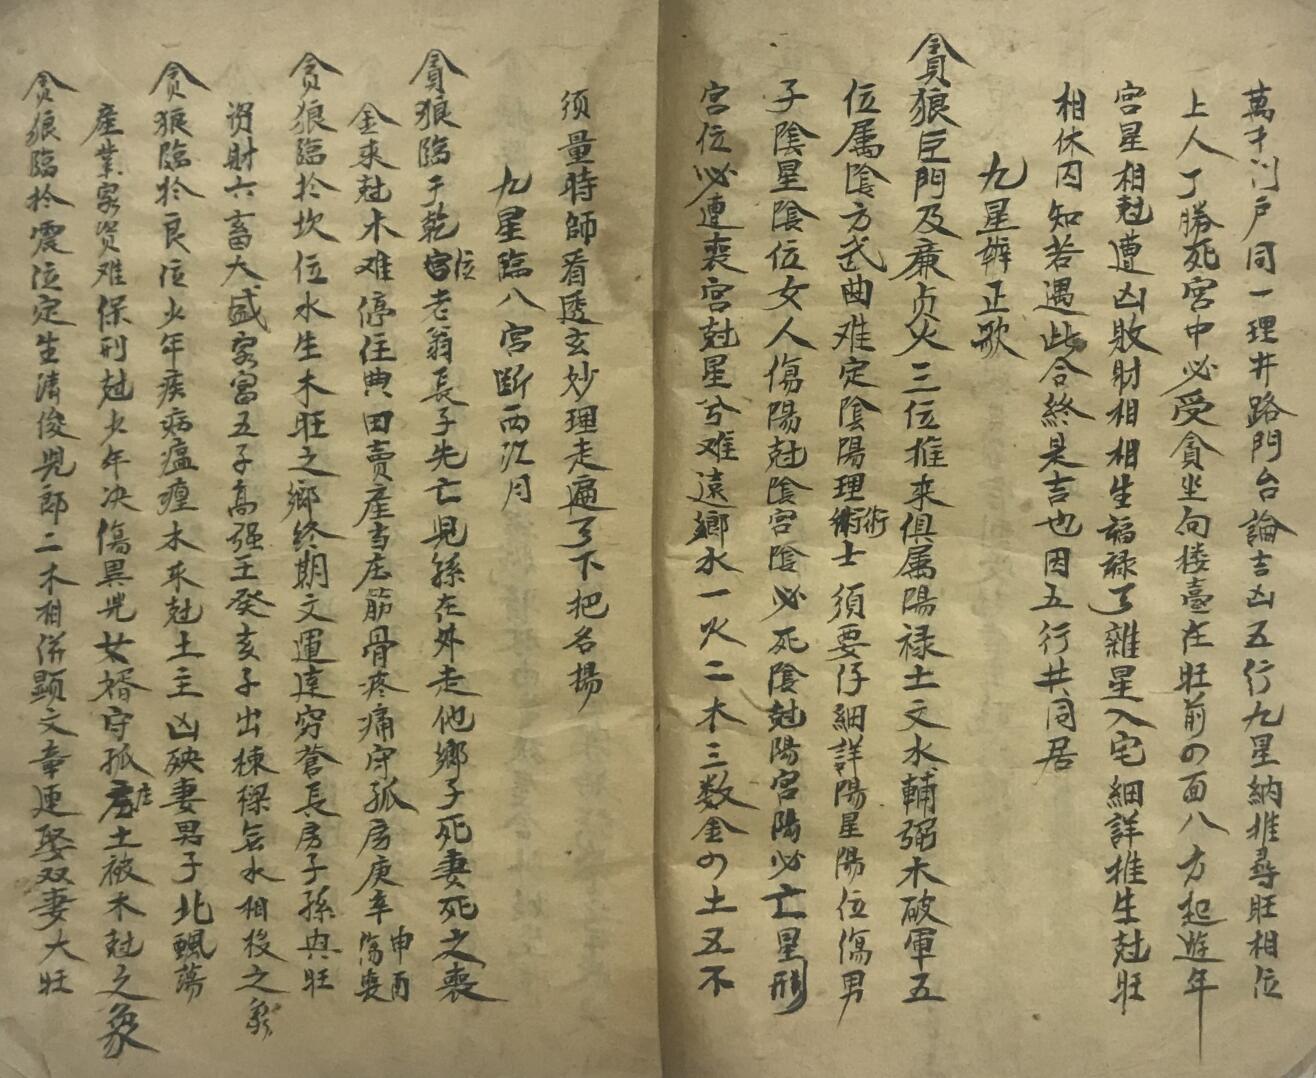 萬才门户同一理井路門台論吉凶五行九星納推尋旺相位
上人丁勝死宮中必受貪坐向楼臺在旺前の面八方起遊年
宮星相尅遭凶敗財相相生福禄了雜星入宅細詳推生尅旺
相休囚知若遇此合終是吉也因五行共同居
九星辨正歌
貪狼巨門及廉贞火三位推来俱属陽禄土文水輔弼木破軍五
位属陰方武曲难定陰陽理術士須要仔細詳陽星陽位傷男
子陰星陰位女人傷陽尅陰宮陰必死陰尅陽宮陽必亡星刑
宮位必遭丧宮尅星兮难遠鄉水一火二木三数金の土五不
须量時師看透玄妙理走遍了下把名揚
九星臨八宮断西江月
貪狼臨于乾位老翁長子先亡見孫在外走他鄉子死妻死之丧
金来尅木难停住典田賣産当庄筋骨疼痛守孤房庚辛申酉傷丧
貪狼臨於坎位水生木旺之鄉終期文運達穷蒼長房子孫興旺
资財六畜大盛家富五子高强壬癸亥子出棟樑无水相投之象
貪狼臨於艮位少年疾病瘟瘽木來尅土主凶殃妻男子北飄蕩
産業家资难保刑尅少年决傷異児女婿守孤土被木尅之象
貪狼臨於震位定生清俊児郎二木相併顕文章連娶双妻大旺